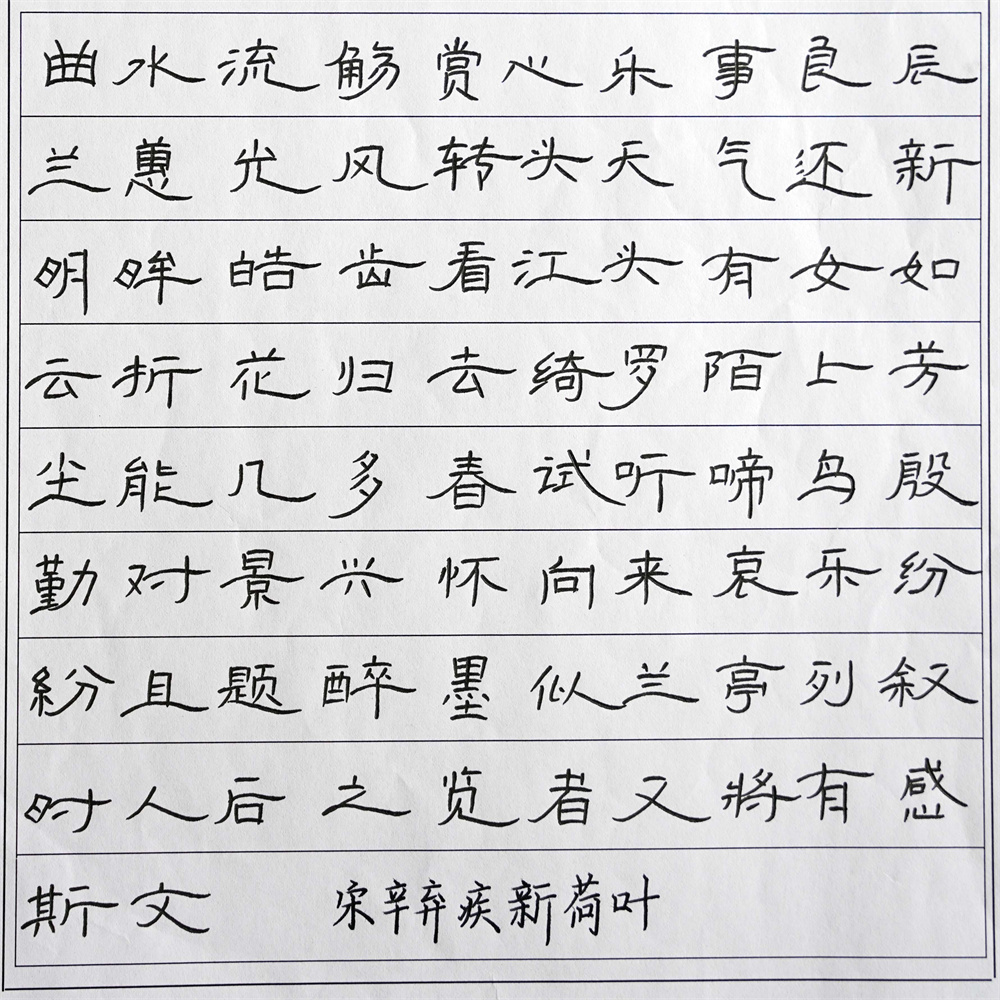 曲水流觞赏心乐事良辰
兰蕙光风转头天气还新
明眸皓齿看江头有女如
云折花归去绮罗陌上芳
尘能几多春试听啼鸟殷
勤对景兴怀向来哀乐纷
紛且题醉墨似兰亭列叙
时人后之览者又将有感
斯文 宋辛弃疾新荷叶